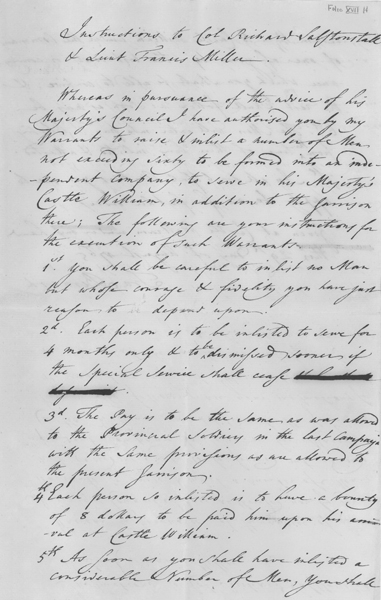 Instructions to Col Richard Saltonstall
& Lieut Francis Miller.
Whereas in pursuance of the advice of his
Majesty's Council I have authorised you by my
Warrants to raise & inlist a number of Men
not exceeding Sixty to be formed into an inde-
-pendent Company, to serve in his Majesty's
Castle William, in addition to the Garrison
there; The following are your instructions for
the execution of such Warrants
1st. You shall be careful to inlist no Man
but whose courage & fidelity you have just
reason to depend upon.
2d. Each person is to be inlisted to serve for
4 months only & to be dismissed sooner if
the Special Service shall cease
3d. The Pay is to be the Same as was allowed
to the Provincial Soldiers in the last Campaign
with the Same provisions as are allowed to
the present Garrison.
4th Each person so inlisted is to have a bounty
of 8 dollars to be paid him upon his arri-
val at Castle William.
5th As soon as you shall have inlisted a
considerable Number of Men, you shall